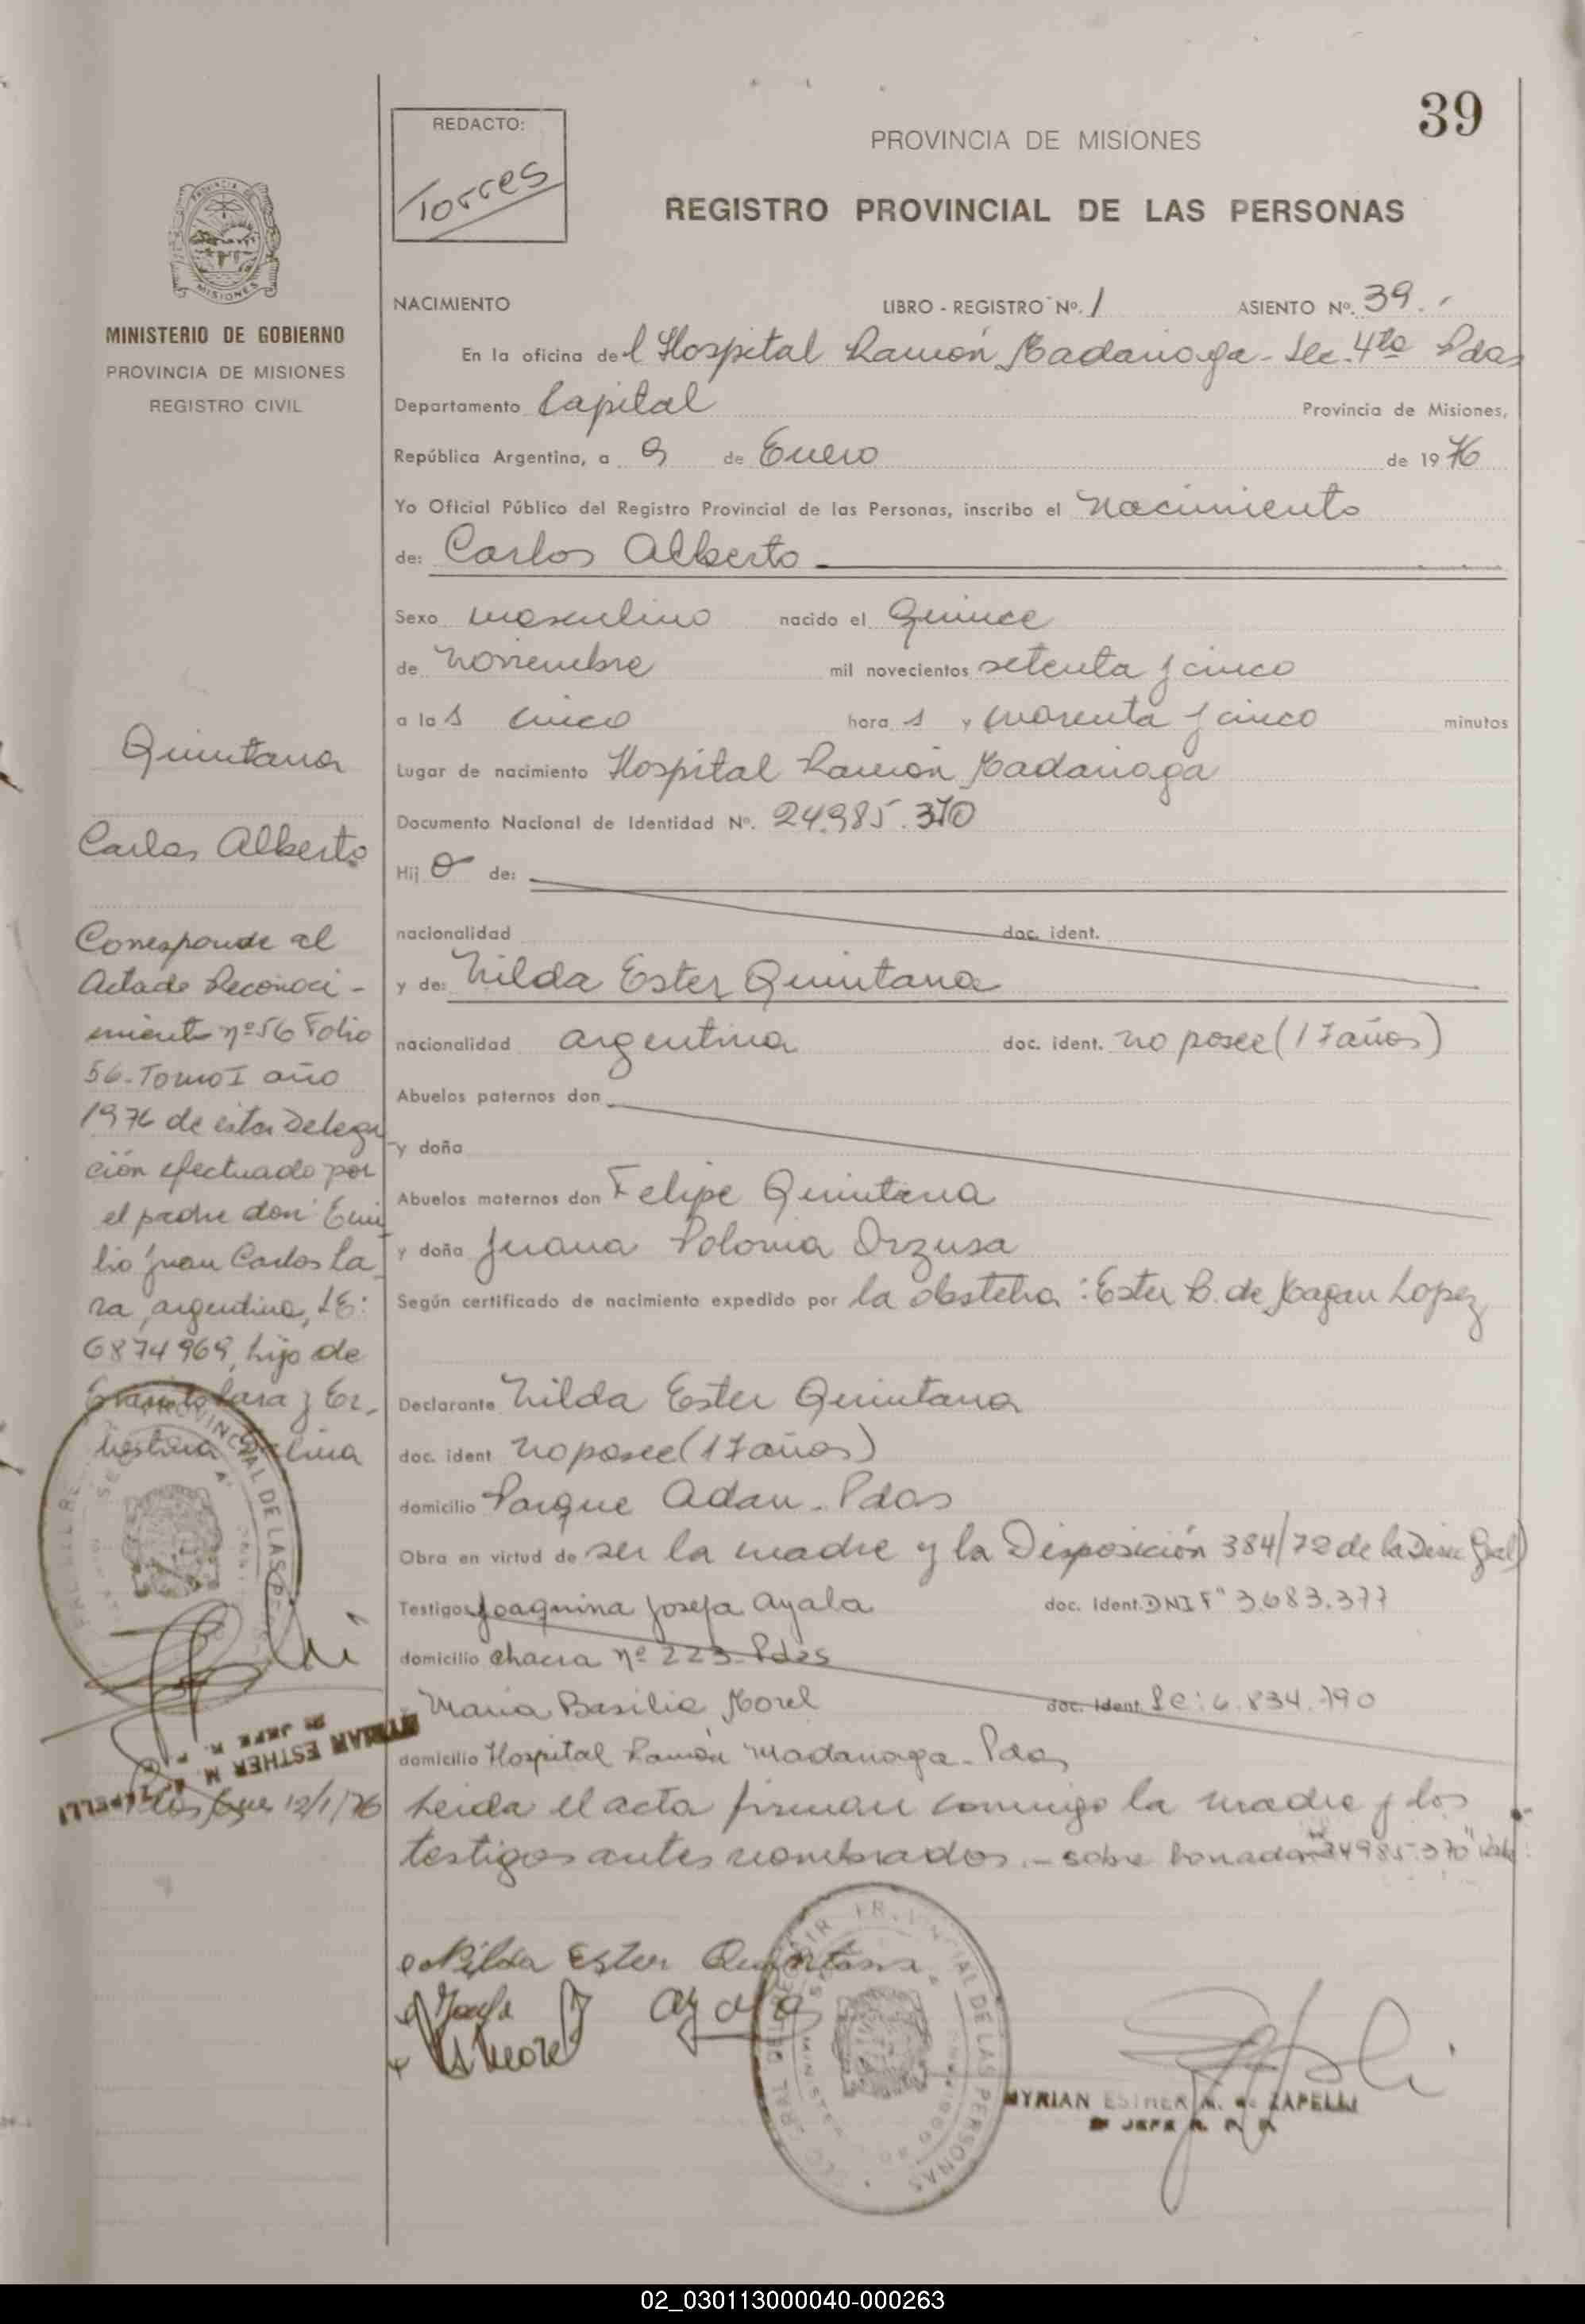 39
REDACTO:
Torres
PROVINCIA DE MISIONES
REGISTRO PROVINCIAL DE LAS PERSONAS
MISIONES
MINISTERIO DE GOBIERNO
PROVINCIA DE MISIONES
REGISTRO CIVIL
NACIMIENTO LIBRO - REGISTRO Nº. 1 ASIENTO Nº. 39.
En la oficina del Hospital Ramón Madariaga - Sec. 4ta Pdas
Departamento Capital Provincia de Misiones,
República Argentina, a 9 de Enero de 1976
Yo Oficial Público del Registro Provincial de las Personas, inscribo el nacimiento
de: Carlos Alberto
Sexo masculino nacido el Quince
de noviembre mil novecientos setenta y cinco
a las cinco horas y cuarenta y cinco minutos
Lugar de nacimiento Hospital Ramón Madariaga
Documento Nacional de Identidad Nº. 24.985.370
Hijo de:
nacionalidad doc. ident.
y de: Nilda Ester Quintana
nacionalidad argentina doc. ident. no posee (17 años)
Abuelos paternos don
y doña
Abuelos maternos don Felipe Quintana
y doña Juana Polonia Orzusa
Según certificado de nacimiento expedido por la obstetra: Ester B. de Magan Lopez
Declarante Nilda Ester Quintana
doc. ident no posee (17 años)
domicilio Parque Adam - Pdas
Obra en virtud de ser la madre y la Disposición 384/72 de la Direc Gral)
Testigos Joaquina Josefa Ayala doc. Ident. DNI F" 3.683.377
domicilio chacra nº 223 - Pdas
Maria Basilia Morel doc. Ident. LC: 6.834.790
domicilio Hospital Ramón Madariaga - Pdas
Leida el acta firman conmigo la madre y los
testigos antes nombrados. - sobre borrado "24985.370" Vale
Nilda Ester Quintana
Ayala
Morel
MYRIAN ESTHER M. de ZAPELLI
JEFE R. P. P.
Quintana
Carlos Alberto
Corresponde al
Acta de Reconoci-
miento nº 56 Folio
56 - Tomo I año
1976 de esta Delega
ción efectuado por
el padre don Emi
lio Juan Carlos La
ra, argentino, LE:
6874969, hijo de
Lara y Er-
nestina
MYRIAN ESTHER M. de ZAPELLI
JEFE R. P. P.
12/1/76
02_030113000040-000263